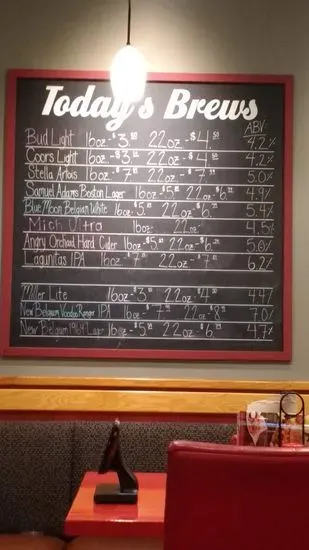 Today's Brews
ABV
Bud Light 16oz-$3. 22oz-$4. 4.2%
Coors Light 16oz-$3. 22oz-$4 4.2%
Stella Artois 16oz-$7 22oz-$7 5.0%
Samuel Adams Boston Lager 16oz-$5. 22oz-$6. 4.9%
Blue Moon Belgian White 16oz-$5. 22oz-$6. 5.4%
Mich Ultra 16oz- 22oz- 4.5%
Angry Orchard Hard Cider 16oz-$5. 22oz-$6. 5.0%
Lagunitas IPA 16oz-$7 22oz-$7 6.2%
Miller Lite 16oz-$3. 22oz-$4 4.4%
New Belgium Voodoo Ranger IPA 16oz-$7 22oz-$8 7.0%
New Belgium 1969 Lager 16oz-$5. 22oz-$6. 4.7%